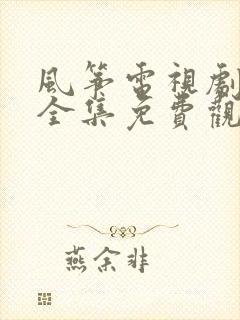 風筝電視劇
全集免費觀
燕余非